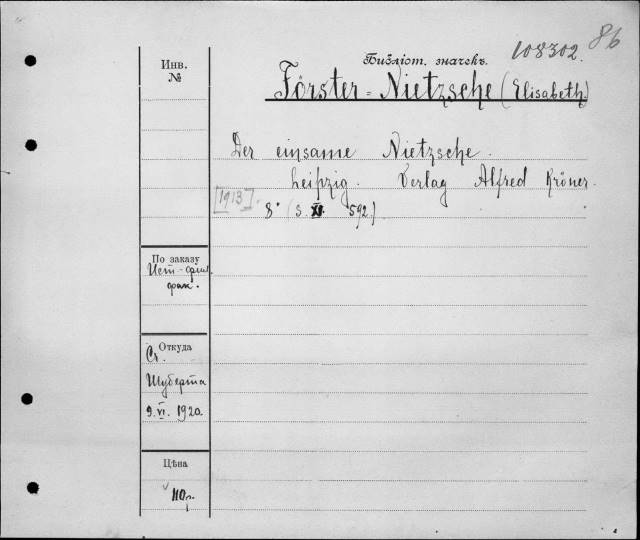 86
108302.
Библіот. значекъ.
Förster-Nietzsche (Elisabeth)
Инв.
№
Der einsame Nietzsche.
Leipzig. Verlag Alfred Kröner.
[1913].
8° (S. XI. 592.)
По заказу
Ист-фил.
фак.
Откуда
Ст.
Шуберта
9.VI. 1920.
Цѣна
110р.